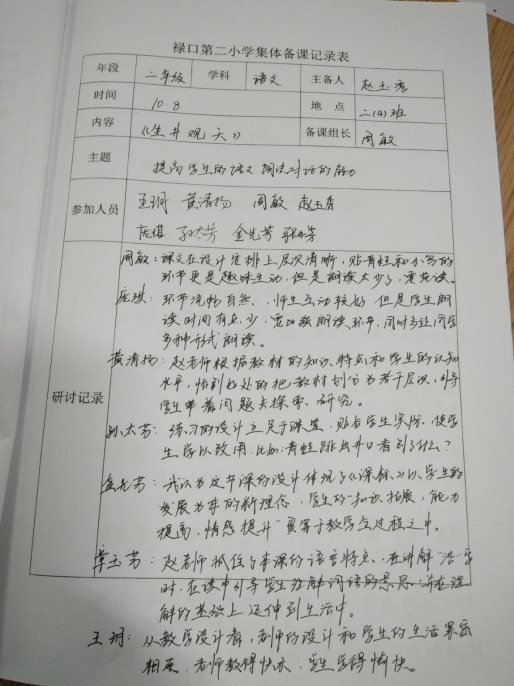 禄口第二小学集体备课记录表
年段 二年级 学科 语文 主备人 赵玉秀
时间 10.8 地点 二(4)班
内容 《坐井观天》 备课组长 周敏
主题 提高学生的语文朗读对话的能力
参加人员 王玥 黄清扬 周敏 赵玉秀
孙大芳 金先芳
研讨记录
周敏：课文在设计安排上层次清晰，贴青蛙和小鸟的
环节更是趣味生动，但是朗读太少了，要范读。
环节流畅自然，师生互动较好，但是学生朗
读时间有点少，需加强朗读环节，同时多让同学
多种形式朗读。
黄清扬：赵老师根据教材的知识、特点和学生的认知
水平，恰到好处的把教材划分为若干层次，引导
学生带着问题去探索、研究。
孙大芳：练习的设计立足于课堂，贴合学生实际，使学
生学以致用，比如：青蛙跳出井口看到了什么？
金先芳：我认为这节课的设计体现了《课标》以学生的
发展为本的新理念，学生的"知识拓展，能力
提高，情感提升"贯穿于教学全过程之中。
章玉芳：赵老师抓住了本课的语言特点，在讲解"沿"字
时，在读中引导学生理解词语的意思，并在理
解的基础上延伸到生活中。
王玥：从教学设计看，老师的设计和学生的生活紧密
相连，老师教得快乐，学生学得愉快。